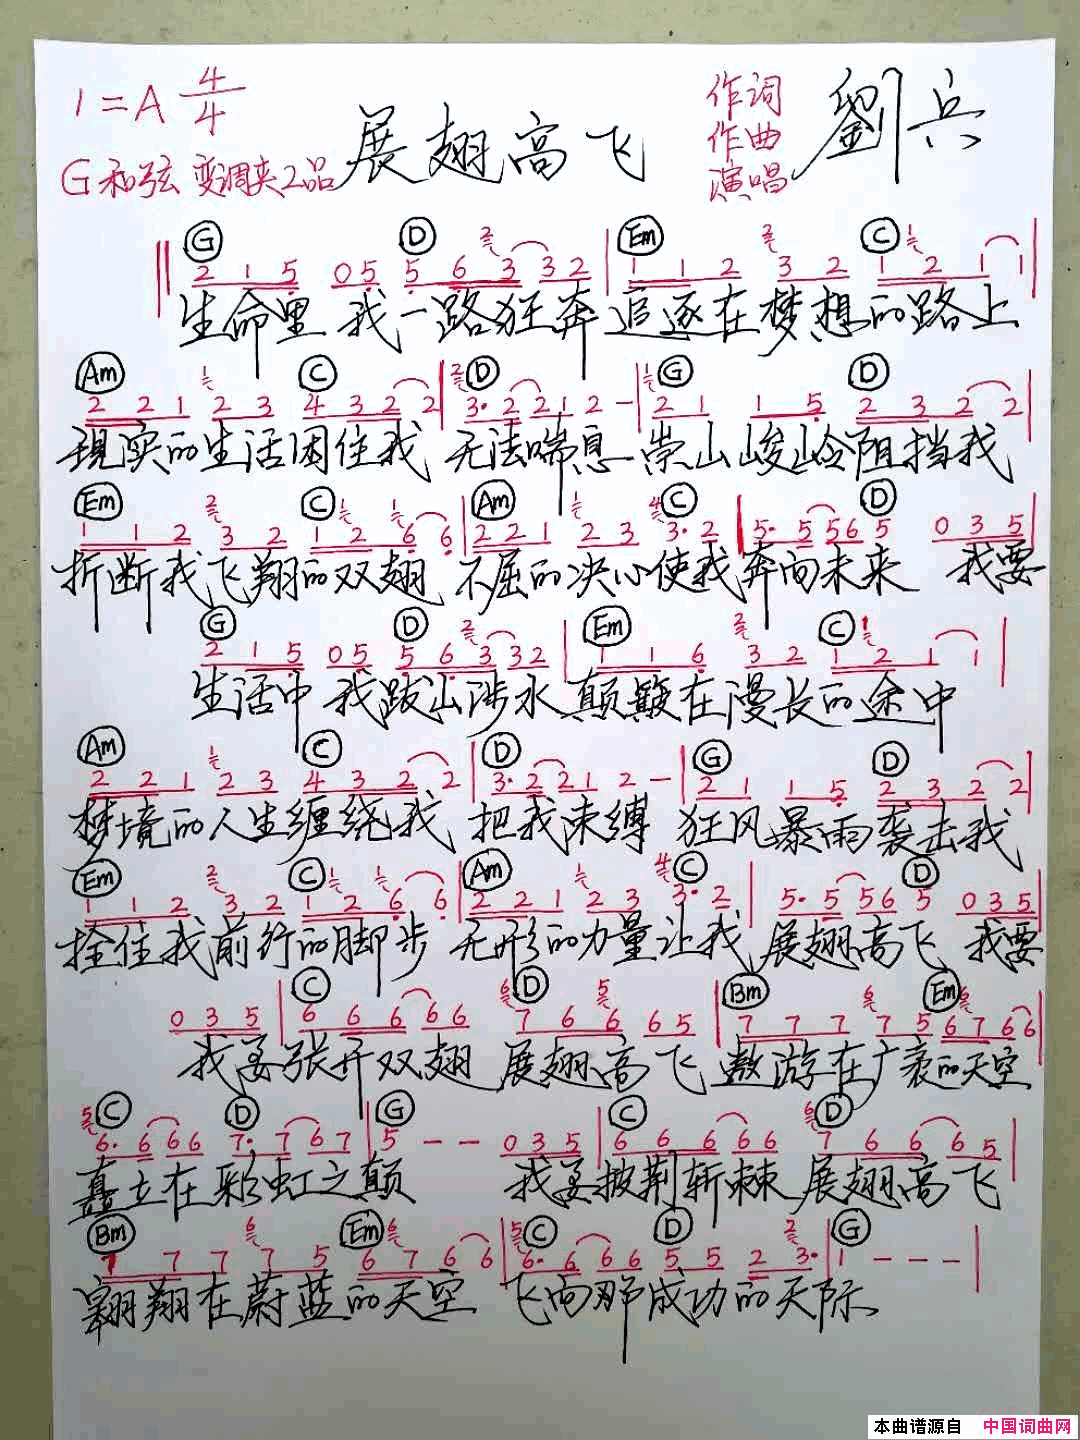 1=A 4/4
展翅高飞
作词
作曲
演唱
劉兵
G和弦 变调夹2品
G D Em C
2 1 5 0 5 5 6 3 3 2 | 1 1 2 3 2 1 2 1 1 |
生命里 我一路狂奔 追逐在梦想的路上
Am C D G D
2 2 1 2 3 4 3 2 2 | 3· 2 2 1 2 - | 2 1 1 5 2 3 2 2 |
現实的生活困住我 无法喘息 崇山峻岭阻挡我
Em C Am C D
1 1 2 3 2 1 2 6 6 | 2 2 1 2 3 3· 2 | 5· 5 5 6 5 0 3 5 |
折断我飞翔的双翅 不屈的决心使我奔向未来 我要
G D Em C
2 1 5 0 5 5 6 3 3 2 | 1 1 6 3 2 1 2 1 1 |
生活中 我跋山涉水 颠簸在漫长的途中
Am C D G D
2 2 1 2 3 4 3 2 2 | 3· 2 2 1 2 - | 2 1 1 5 2 3 2 2 |
梦境的人生缠绕我 把我束缚 狂风暴雨袭击我
Em C Am C D
1 1 2 3 2 1 2 6 6 | 2 2 1 2 3 3· 2 | 5· 5 5 6 5 0 3 5 |
拴住我前行的脚步 无形的力量让我 展翅高飞 我要
C D Bm Em
0 3 5 | 6 6 6 6 6 7 6 6 6 5 | 7 7 7 7 5 6 7 6 6 |
我要张开双翅 展翅高飞 遨游在广袤的天空
C D G C D
6· 6 6 6 7· 7 6 7 | 5 - - 0 3 5 | 6 6 6 6 6 7 6 6 6 5 |
矗立在彩虹之颠 我要披荆斩棘 展翅高飞
Bm Em C D G
7 7 7 7 5 6 7 6 6 | 6· 6 6 6 5 5 2 3· | 1 - - - |
翱翔在蔚蓝的天空 飞向那成功的天际
本曲谱源自 中国词曲网